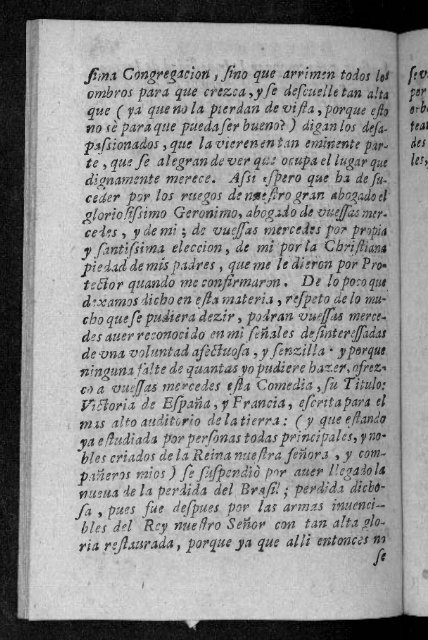 sima Congregacion, sino que arrimen todos los
ombros para que crezca, y se descuelle tan alta
que (ya que no la pierdan de vista, porque esto
no sè para que pueda ser bueno?) digan los desa-
passionados, que la vieren en tan eminente par-
te, que se alegran de ver que ocupa el lugar que
dignamente merece. Assi espero que ha de su-
ceder por los ruegos de nuestro gran abogado el
gloriosissimo Geronimo, abogado de vuessas mer-
cedes, y de mi; de vuessas mercedes por propia
y santissima eleccion, de mi por la Christiana
piedad de mis padres, que me le dieron por Pro-
tector quando me confirmaron. De lo poco que
dexamos dicho en esta materia, respeto de lo mu-
cho que se pudiera dezir, podran vuessas merce-
des auer reconocido en mi señales desinteressadas
de vna voluntad afectuosa, y senzilla. y porque
ninguna falte de quantas yo pudiere hazer, ofrez-
co a vuessas mercedes esta Comedia, su Titulo:
Victoria de España, y Francia, escrita para el
mas alto auditorio de la tierra: (y que estando
ya estudiada por personas todas principales, y no-
bles criados de la Reina nuestra señora, y com-
pañeros mios) se suspendiò por auer llegado la
nueua de la perdida del Brasil; perdida dicho-
sa, pues fue despues por las armas inuenci-
bles del Rey nuestro Señor con tan alta glo-
ria restaurada, porque ya que alli entonces no
se
por
des
les,